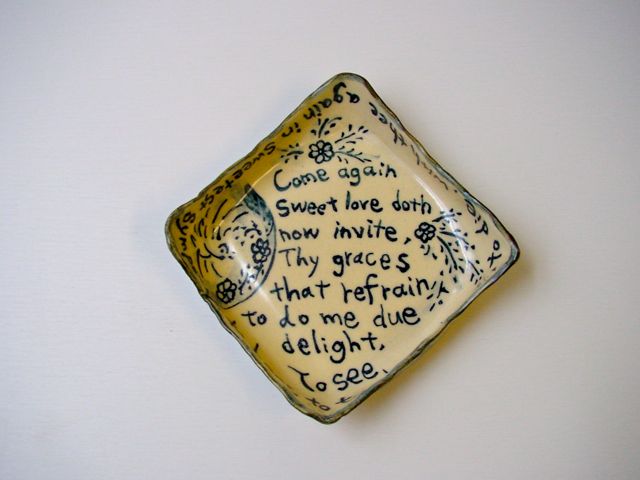 Come again
Sweet love doth
now invite,
Thy graces
that refrain
to do me due
delight,
To see,
thee again in sweetest sym
to